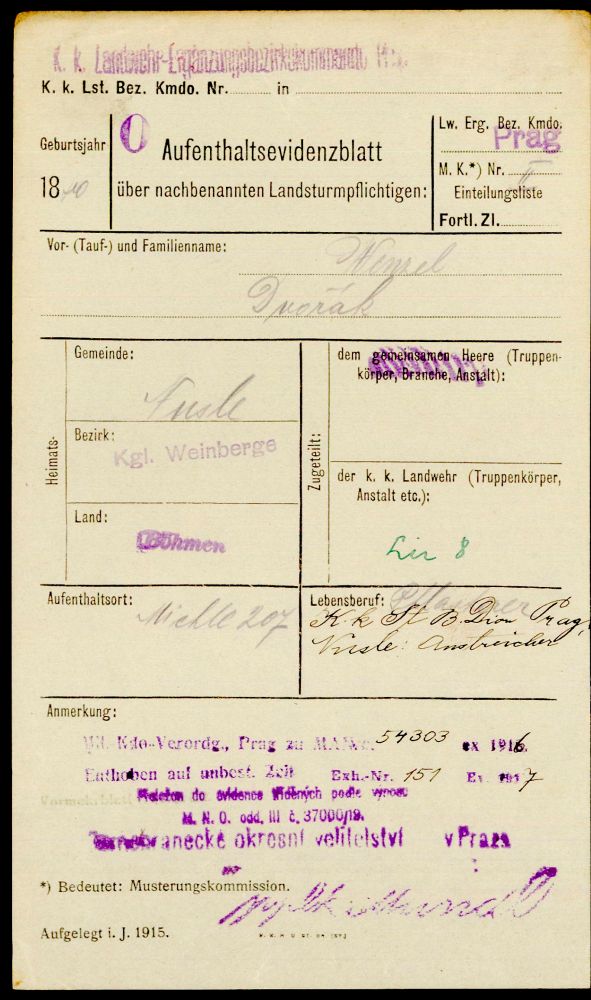 K. k. Landwehr-Ergänzungsbezirkskommando
K. k. Lst. Bez. Kmdo. Nr. in
Geburtsjahr
18
O
Aufenthaltsevidenzblatt
über nachbenannten Landsturmpflichtigen:
Lw. Erg. Bez. Kmdo.
Prag
M. K.*) Nr.
Einteilungsliste
Fortl. Zl.
Vor- (Tauf-) und Familienname:
Wenzel
Dvořák
Heimats-
Gemeinde:
Nusle
Bezirk:
Kgl. Weinberge
Land:
Böhmen
Zugeteilt:
dem gemeinsamen Heere (Truppen-
körper, Branche, Anstalt):
der k. k. Landwehr (Truppenkörper,
Anstalt etc.):
Lir 8
Aufenthaltsort:
Michle 207
Lebensberuf:
K. k. St. B. Dion Prag,
Nusle: Anstreicher
Anmerkung:
Mil. Kdo-Verordg., Prag zu M.A. Nr. 54303 ex 1916.
Enthoben auf unbest. Zeit Exh.-Nr. 151 Ev. 1917
Vormerkblatt
do evidence podle výnosu
M. N. O. odd. III č. 37000/19.
okresní velitelství v Praze
*) Bedeutet: Musterungskommission.
Aufgelegt i. J. 1915.